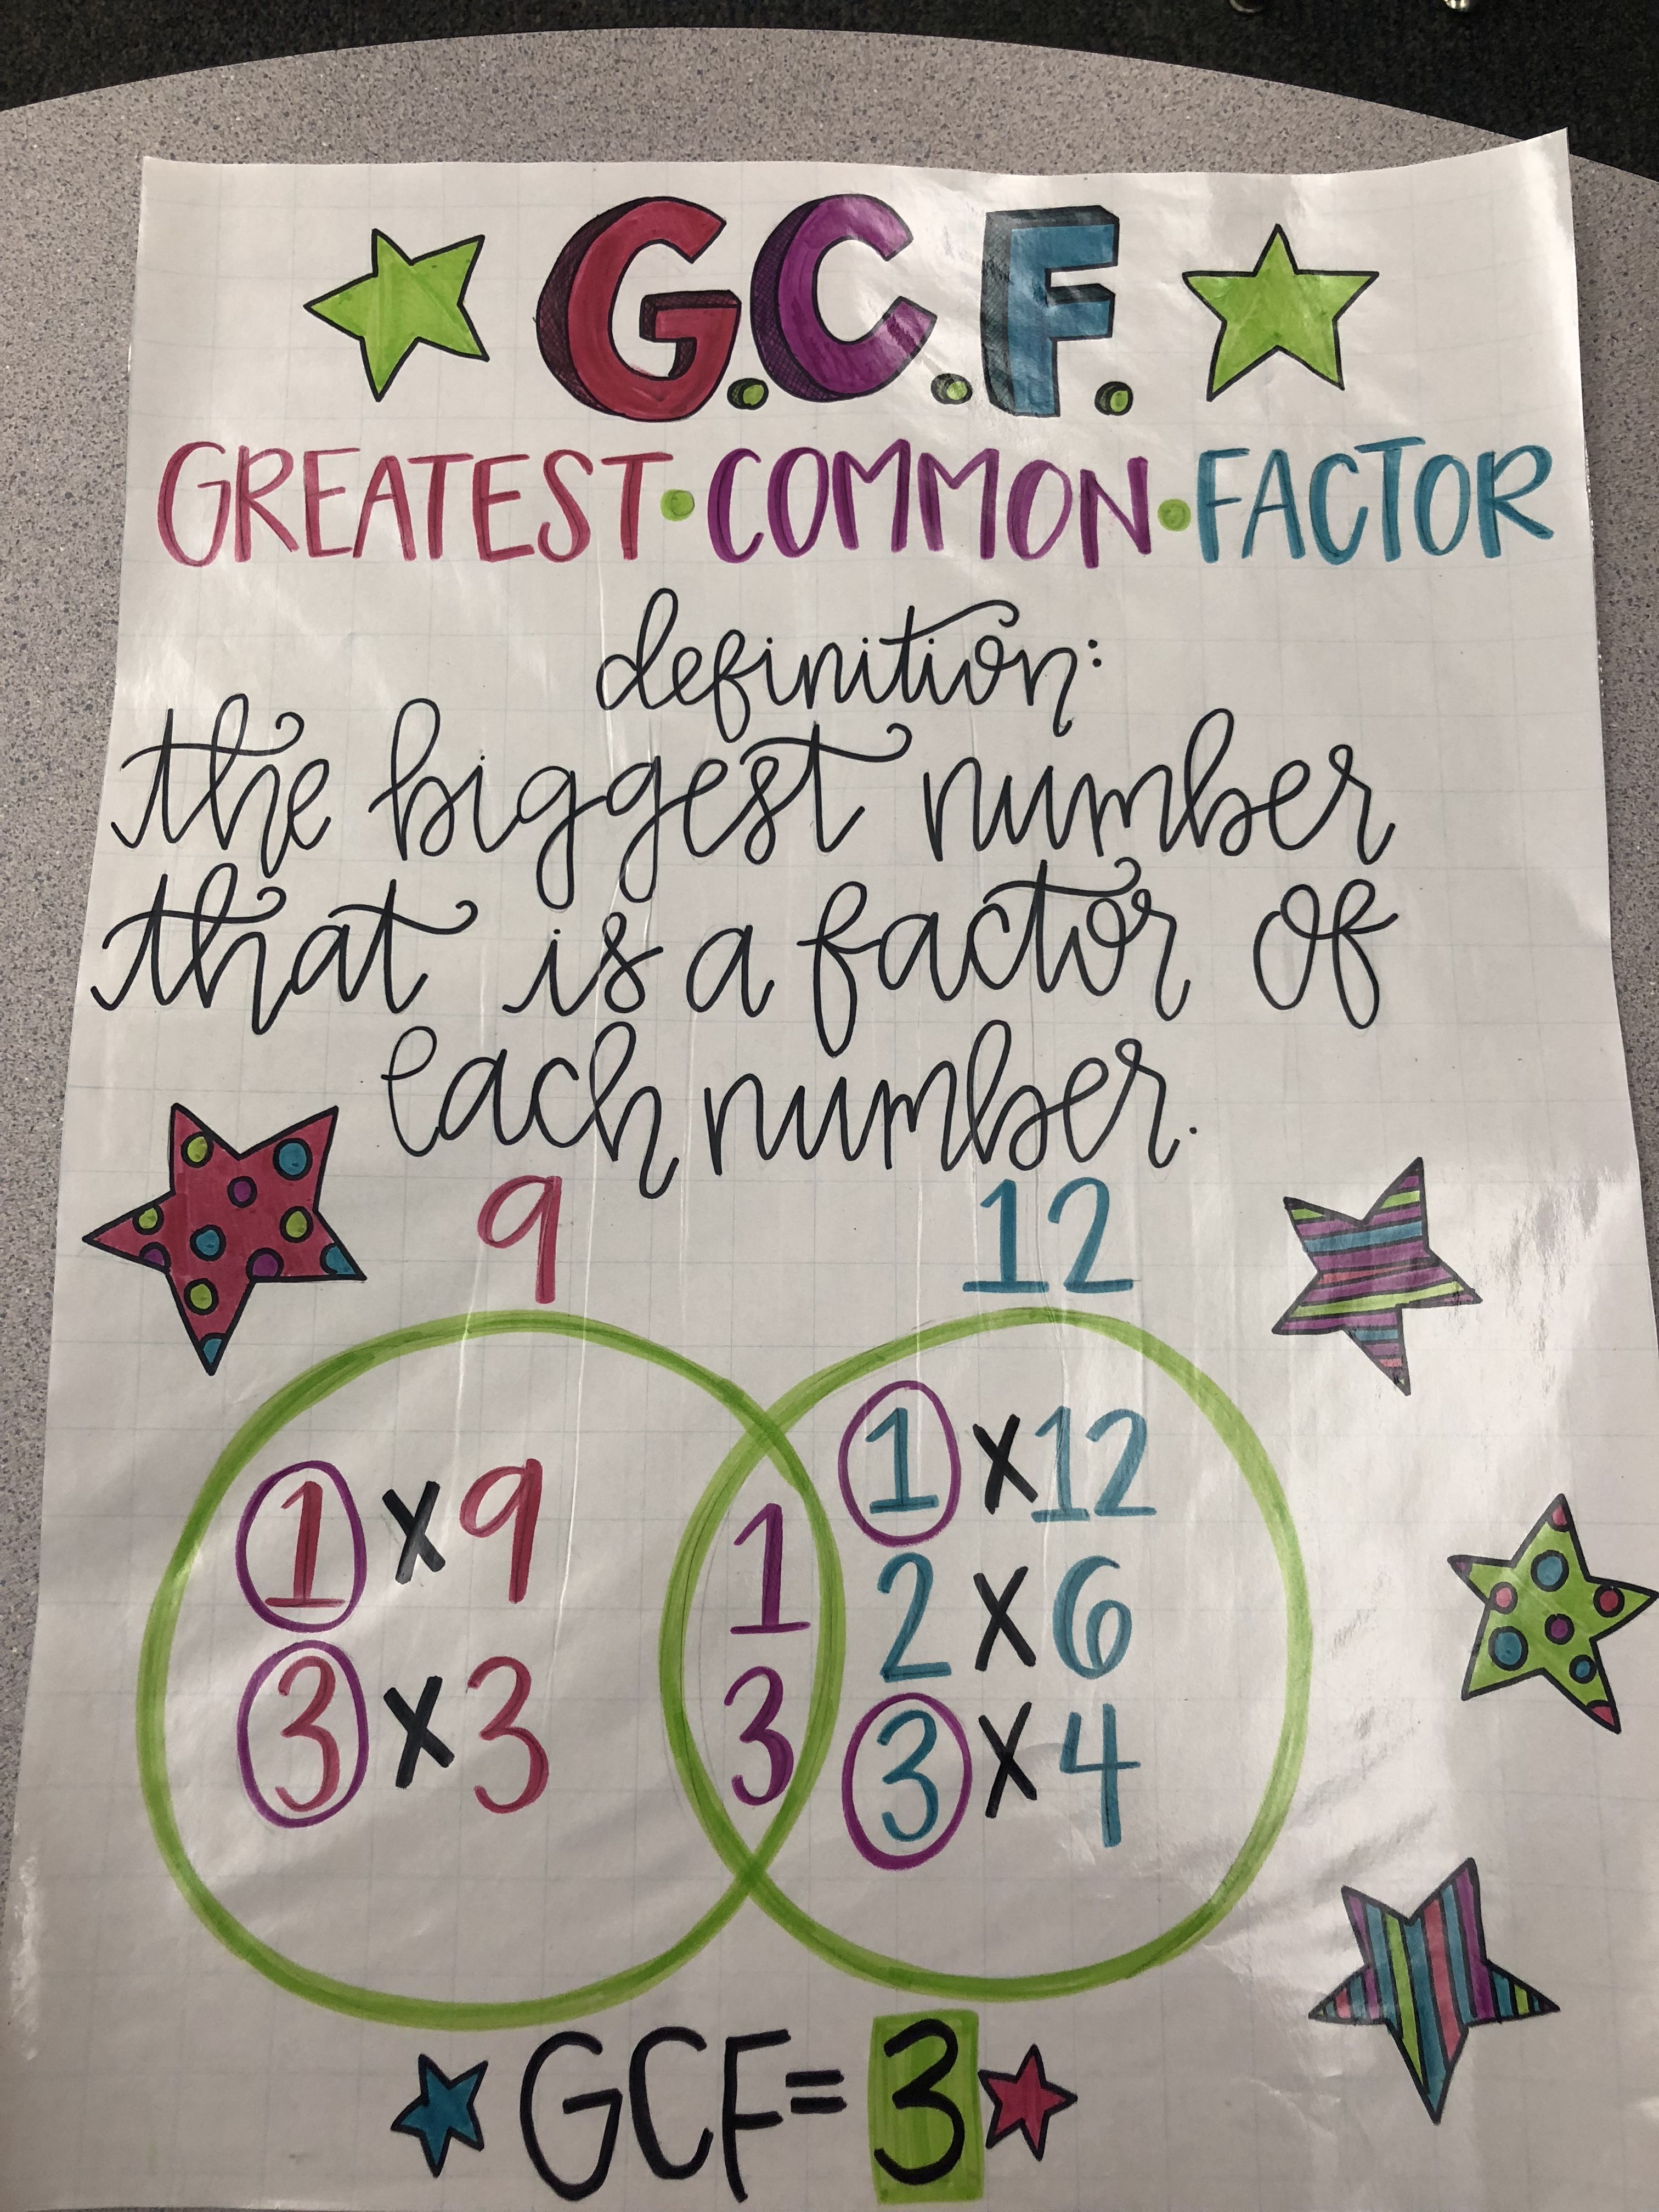 G.C.F.
GREATEST•COMMON•FACTOR
definition:
the biggest number
that is a factor of
each number.
9 12
1 x 9
3 x 3
1
3
1 x 12
2 x 6
3 x 4
GCF=3